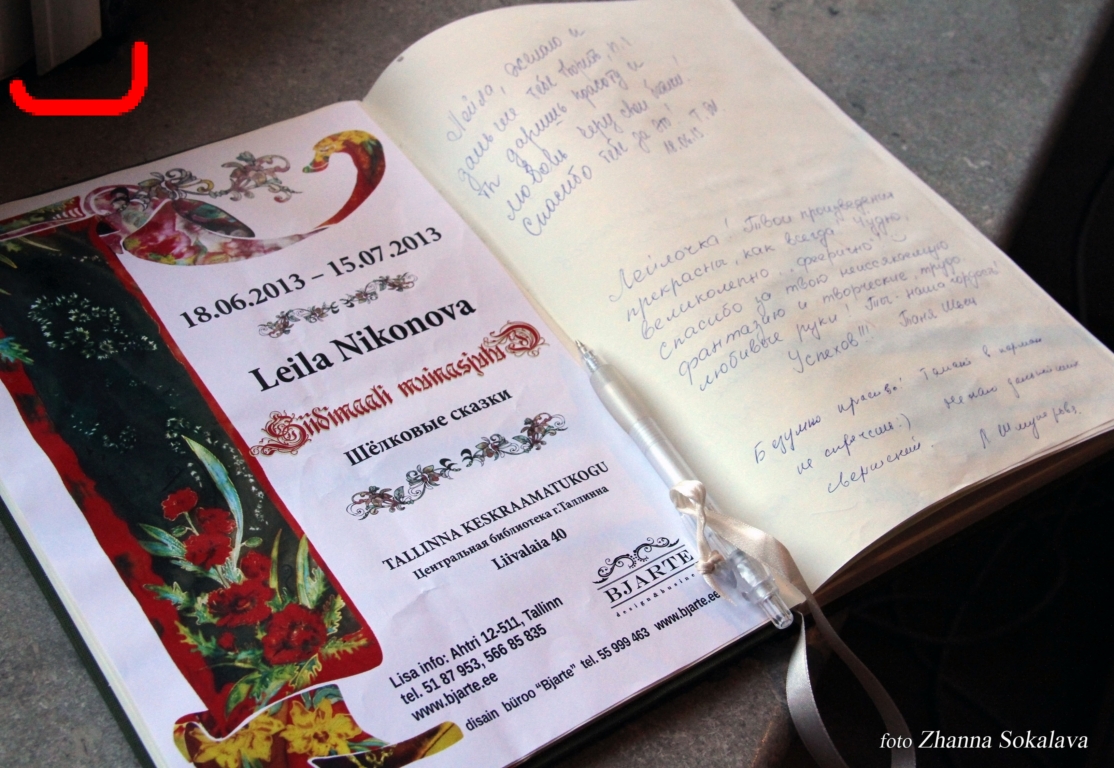 18.06.2013 – 15.07.2013
Leila Nikonova
Siidimaali muinasjutud
Шёлковые сказки
TALLINNA KESKRAAMATUKOGU
Центральная библиотека г.Таллинна
Liivalaia 40
BJARTE
Lisa info: Ahtri 12-511, Tallinn
tel. 51 87 953, 566 85 835
www.bjarte.ee
disain büroo "Bjarte" tel. 55 999 463 www.bjarte.ee
Лейла, желаю и
дальше тебе творить,
даришь красоту и
любовь
Спасибо тебе за это!
Лейлочка! Твои произведения
прекрасны, как всегда! Чудно,
великолепно, "феерично"!
Спасибо за твою неиссякаемую
фантазию и творческие, трудо-
любивые руки! Ты - наша "гордость"
Успехов!!! Таня
Безумно красиво! Талант в карман
не спрячешь:) Желаю дальнейших
свершений.
foto Zhanna Sokalava